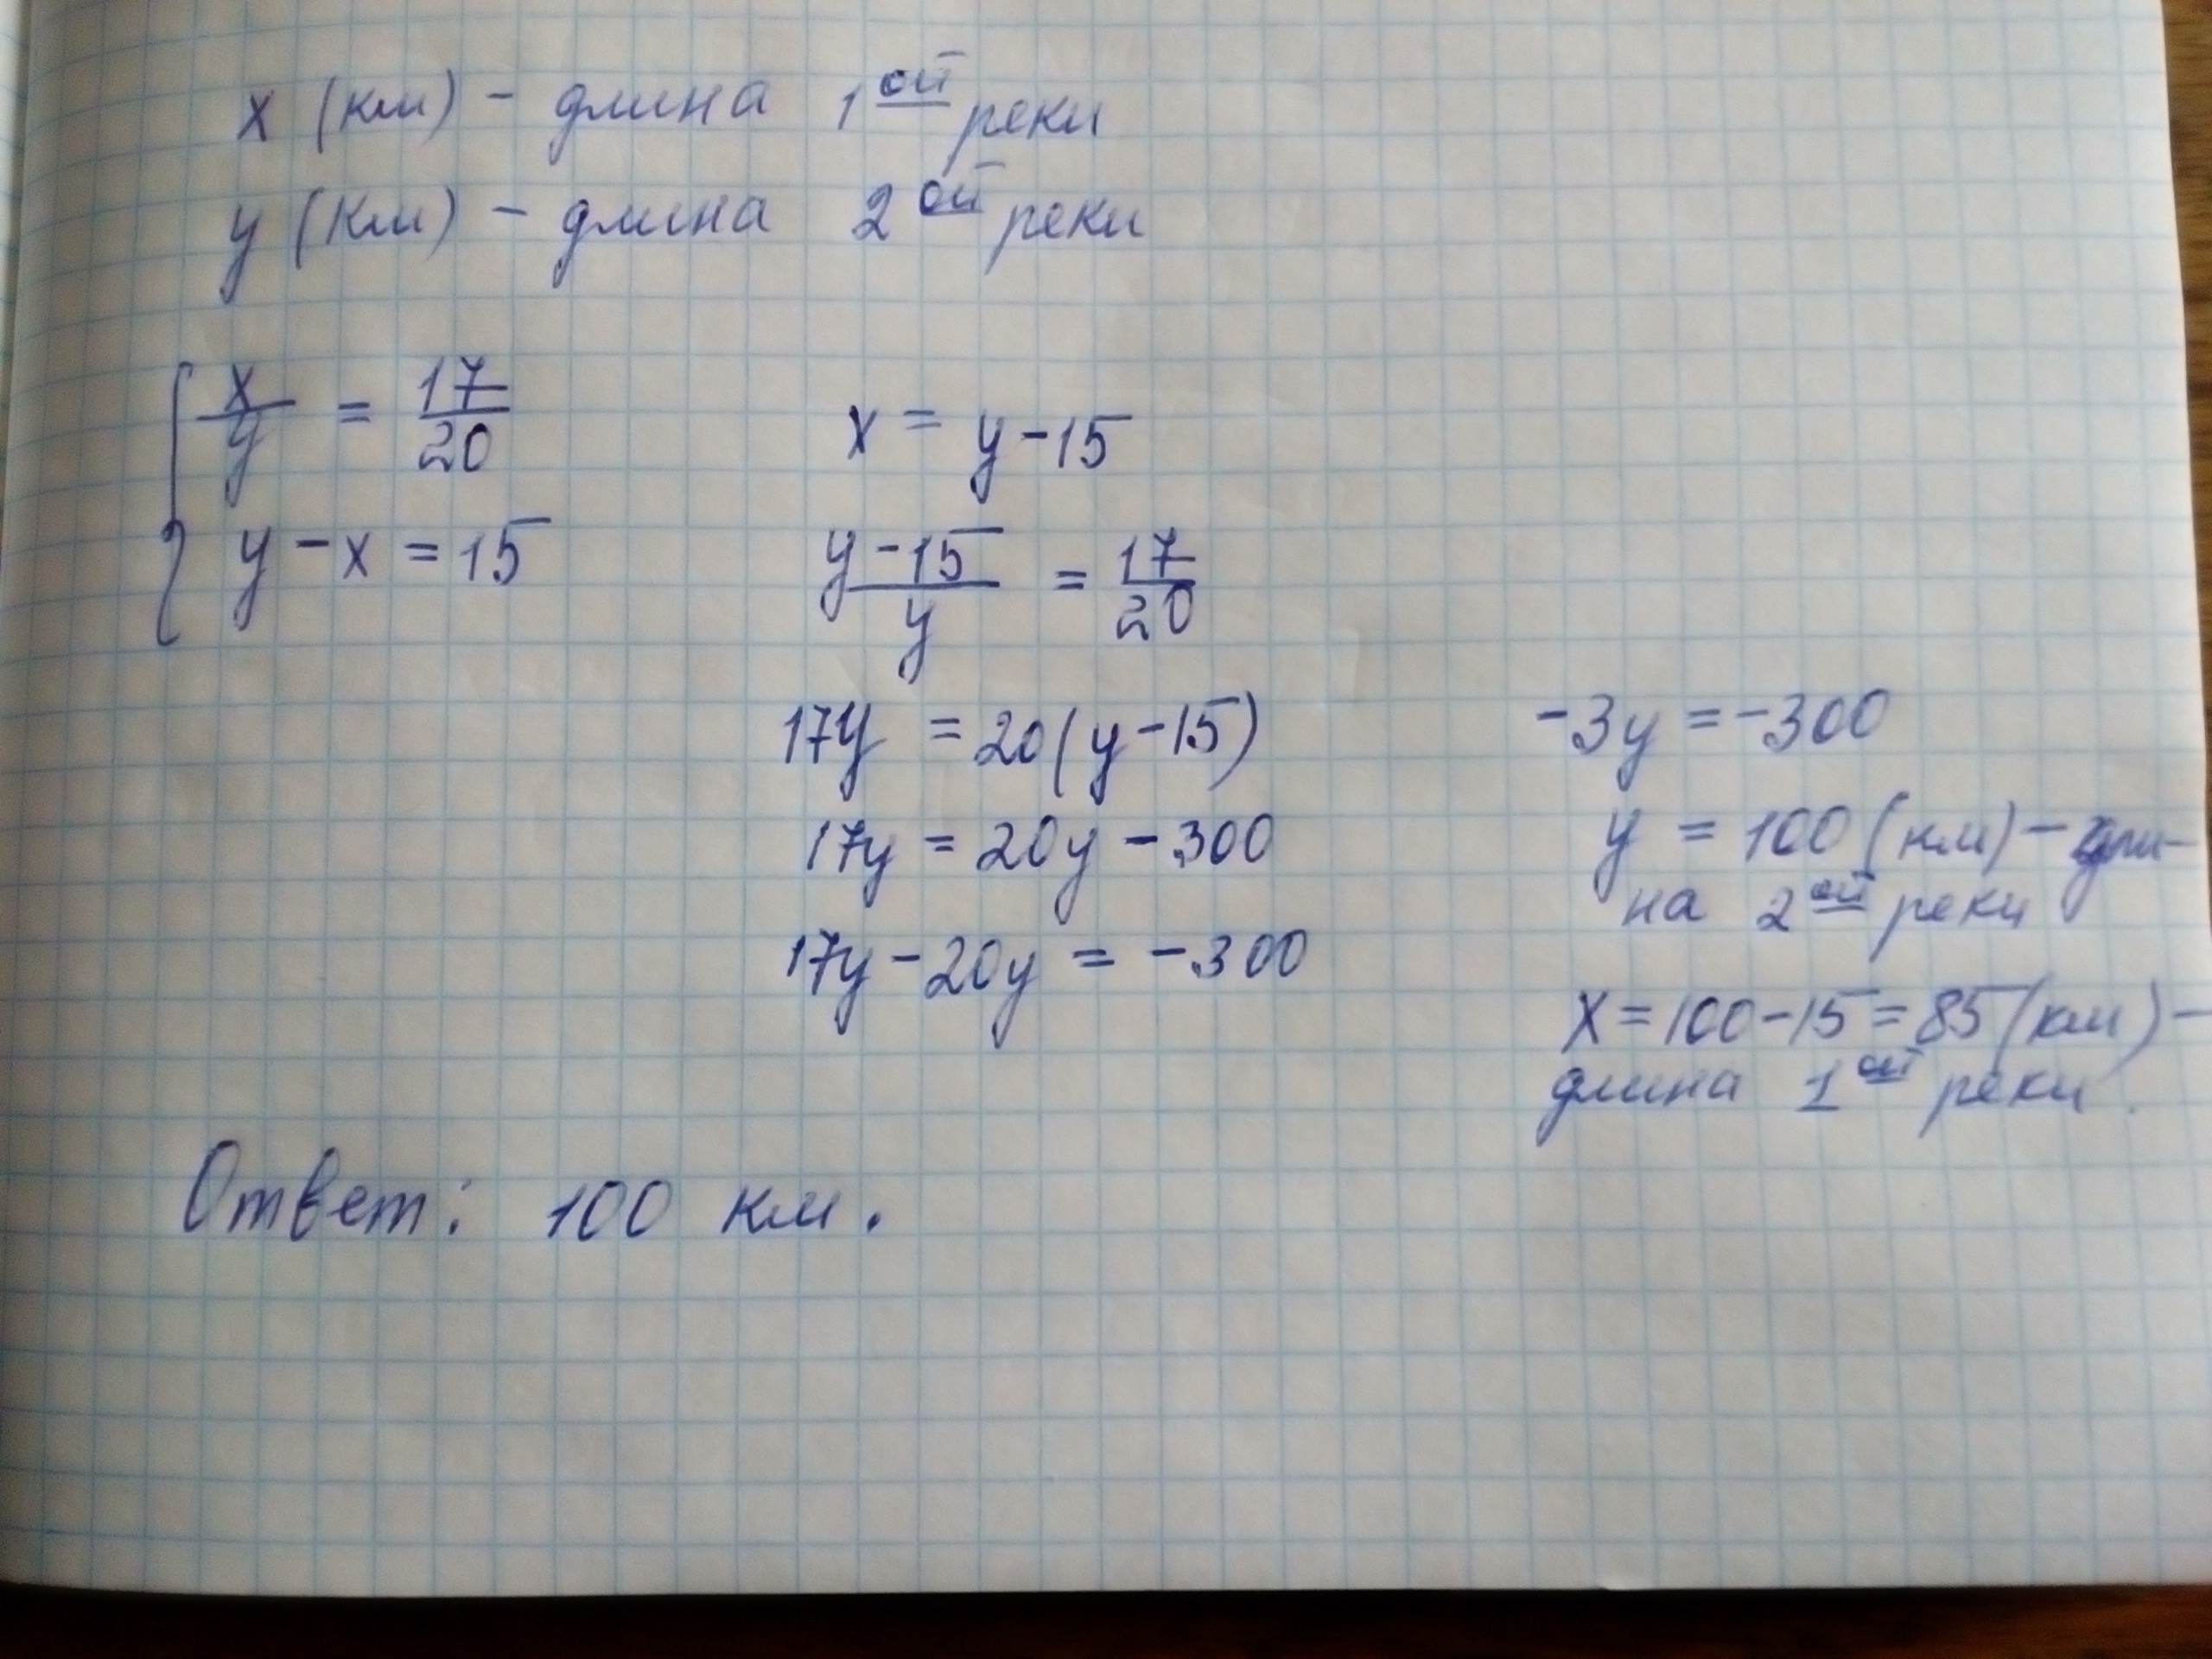 x (км) – длина 1ой реки
y (км) – длина 2ой реки
x/y = 17/20
y – x = 15
x = y – 15
y – 15/y = 17/20
17y = 20(y – 15)
17y = 20y – 300
17y – 20y = –300
–3y = –300
y = 100 (км) – дли-
на 2ой реки
x = 100 – 15 = 85 (км) –
длина 1ой реки.
Ответ: 100 км.